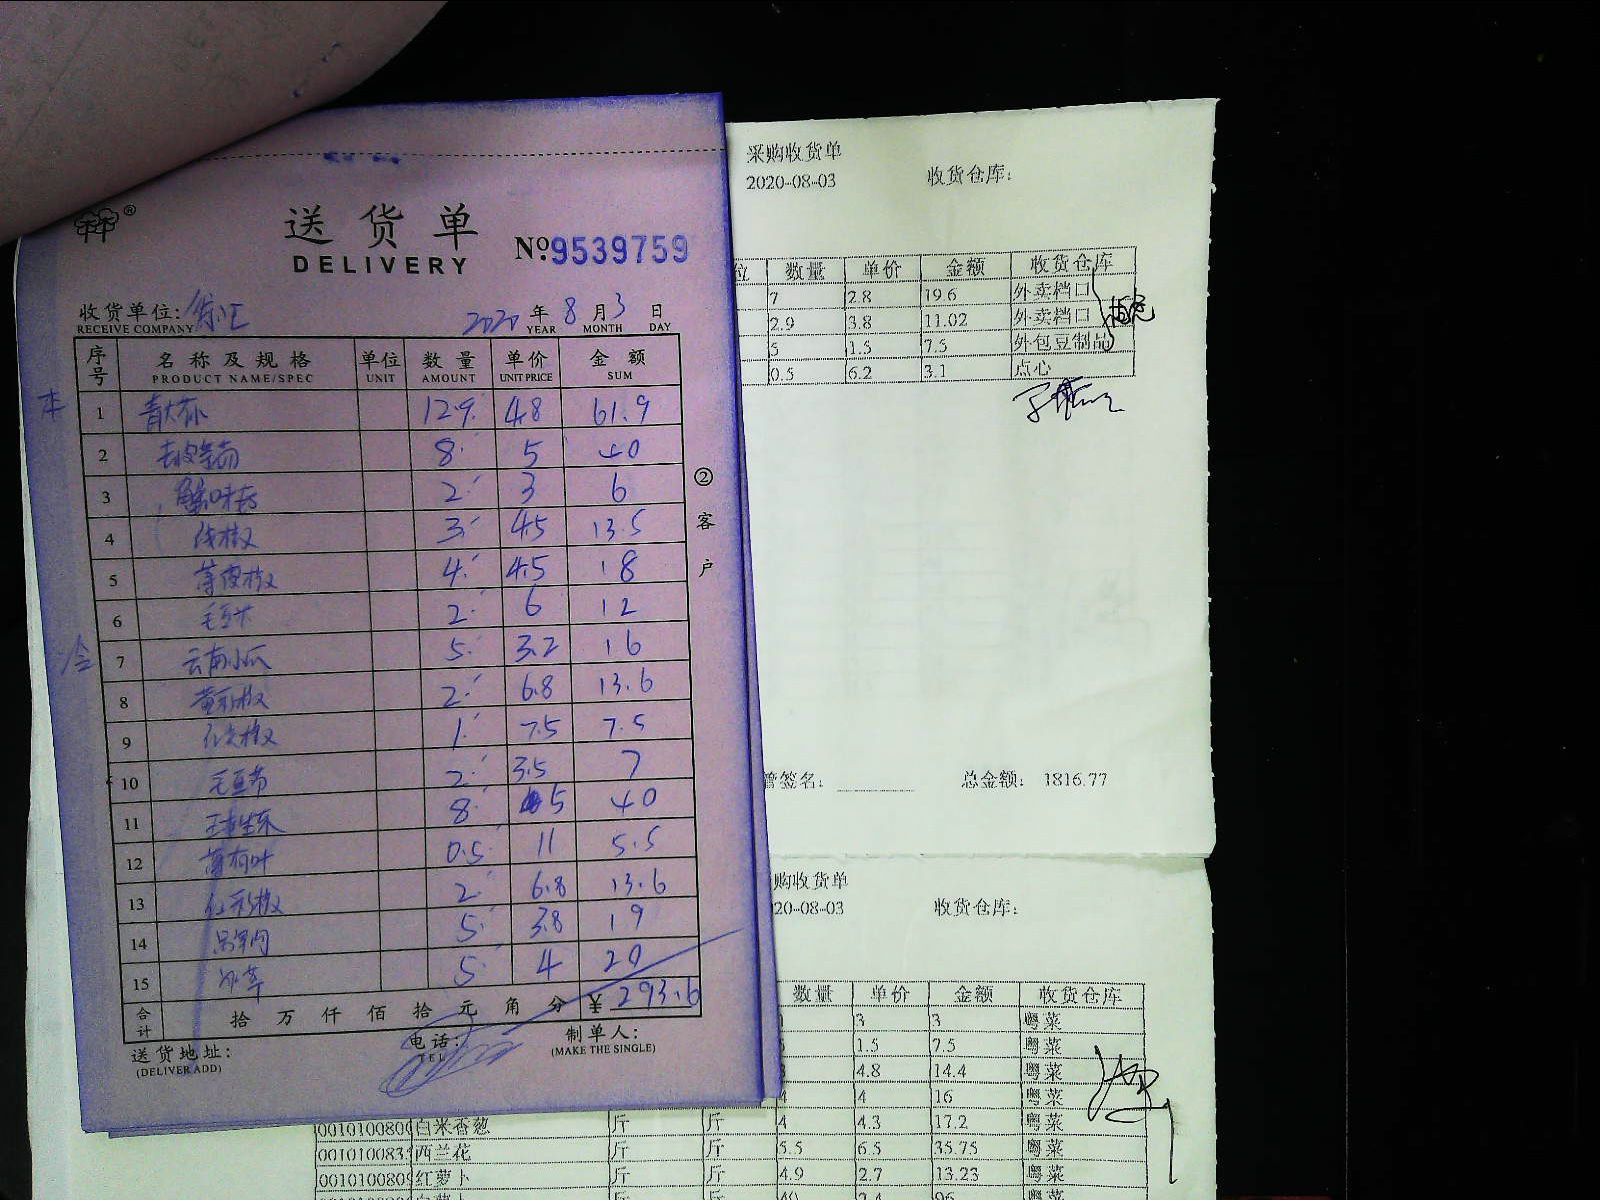 送货单
DELIVERY
№ 9539759
收货单位: 徐汇 2020 年 8 月 3 日
RECEIVE COMPANY YEAR MONTH DAY
序号 名称及规格 单位 数量 单价 金额
PRODUCT NAME/SPEC UNIT AMOUNT UNIT PRICE SUM
1 12.9 4.8 61.9
2 8 5 40
3 蟹味菇 2 3 6
4 线椒 3 4.5 13.5
5 薄皮椒 4 4.5 18
6 2 6 12
7 云南小瓜 5 3.2 16
8 黄彩椒 2 6.8 13.6
9 红尖椒 1 7.5 7.5
10 2 3.5 7
11 8 5 40
12 薄荷叶 0.5 11 5.5
13 红彩椒 2 6.8 13.6
14 5 3.8 19
15 5 4 20
合计 拾 万 仟 佰 拾 元 角 分 ¥ 293.6
送货地址: 电话: 制单人:
(DELIVER ADD) TEL (MAKE THE SINGLE)
② 客户
采购收货单
2020-08-03 收货仓库:
位 数量 单价 金额 收货仓库
7 2.8 19.6 外卖档口
2.9 3.8 11.02 外卖档口
5 1.5 7.5 外包豆制品
0.5 6.2 3.1 点心
管签名: 总金额: 1816.77
购收货单
20-08-03 收货仓库:
数量 单价 金额 收货仓库
3 3 粤菜
1.5 7.5 粤菜
4.8 14.4 粤菜
4 4 16 粤菜
白米香葱 斤 斤 4 4.3 17.2 粤菜
西兰花 斤 斤 5.5 6.5 35.75 粤菜
红萝卜 斤 斤 4.9 2.7 13.23 粤菜